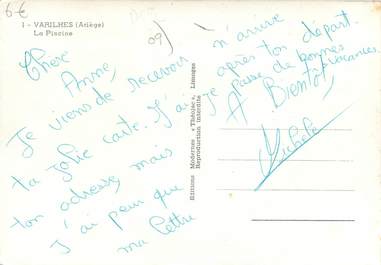 6€
09)
1 - VARILHES (Ariège)
La Piscine
Chère
Anne,
Je viens de recevoir
ta jolie carte. J'ai
ton adresse, mais
J'ai peur que
ma lettre
n'arrive
après ton départ.
Je passe de bonnes
vacances.
A Bientôt,
Michèle
Editions Modernes « Théojac », Limoges
Reproduction interdite